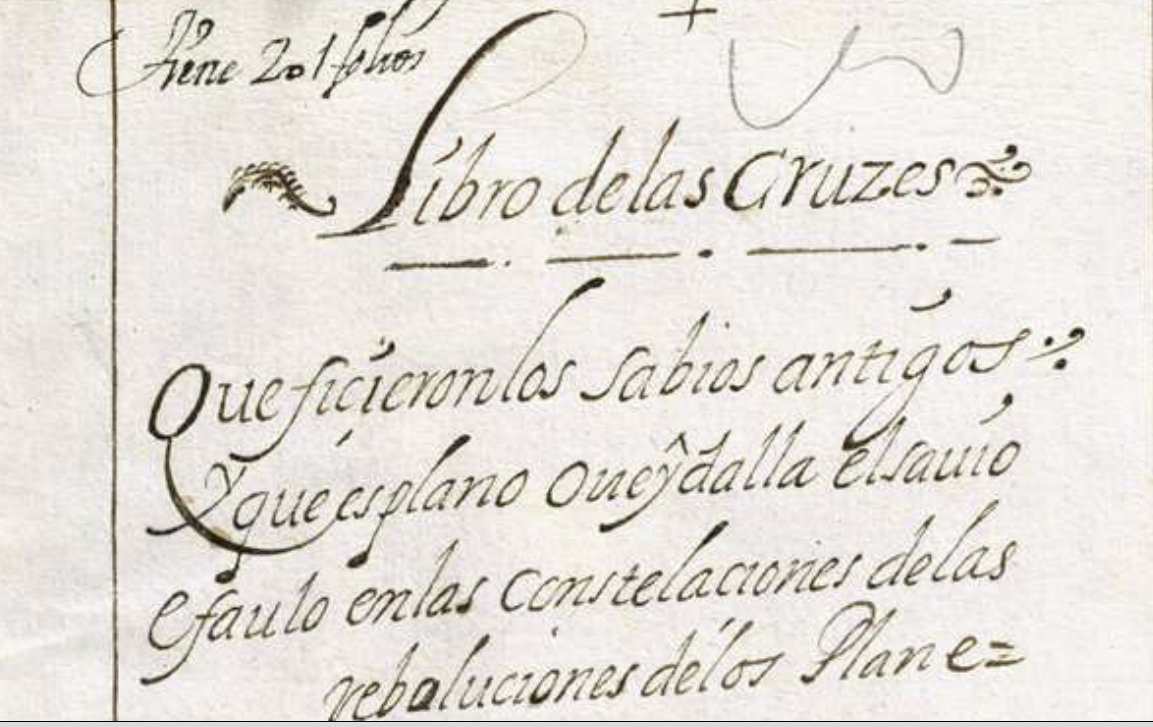 Tiene 201 folios
Libro de las Cruzes
Que ficieron los Sabios antigos
Y que esplano Oueydalla el sauio
e faulo en las Constelaciones de las
reboluciones de los Plane=